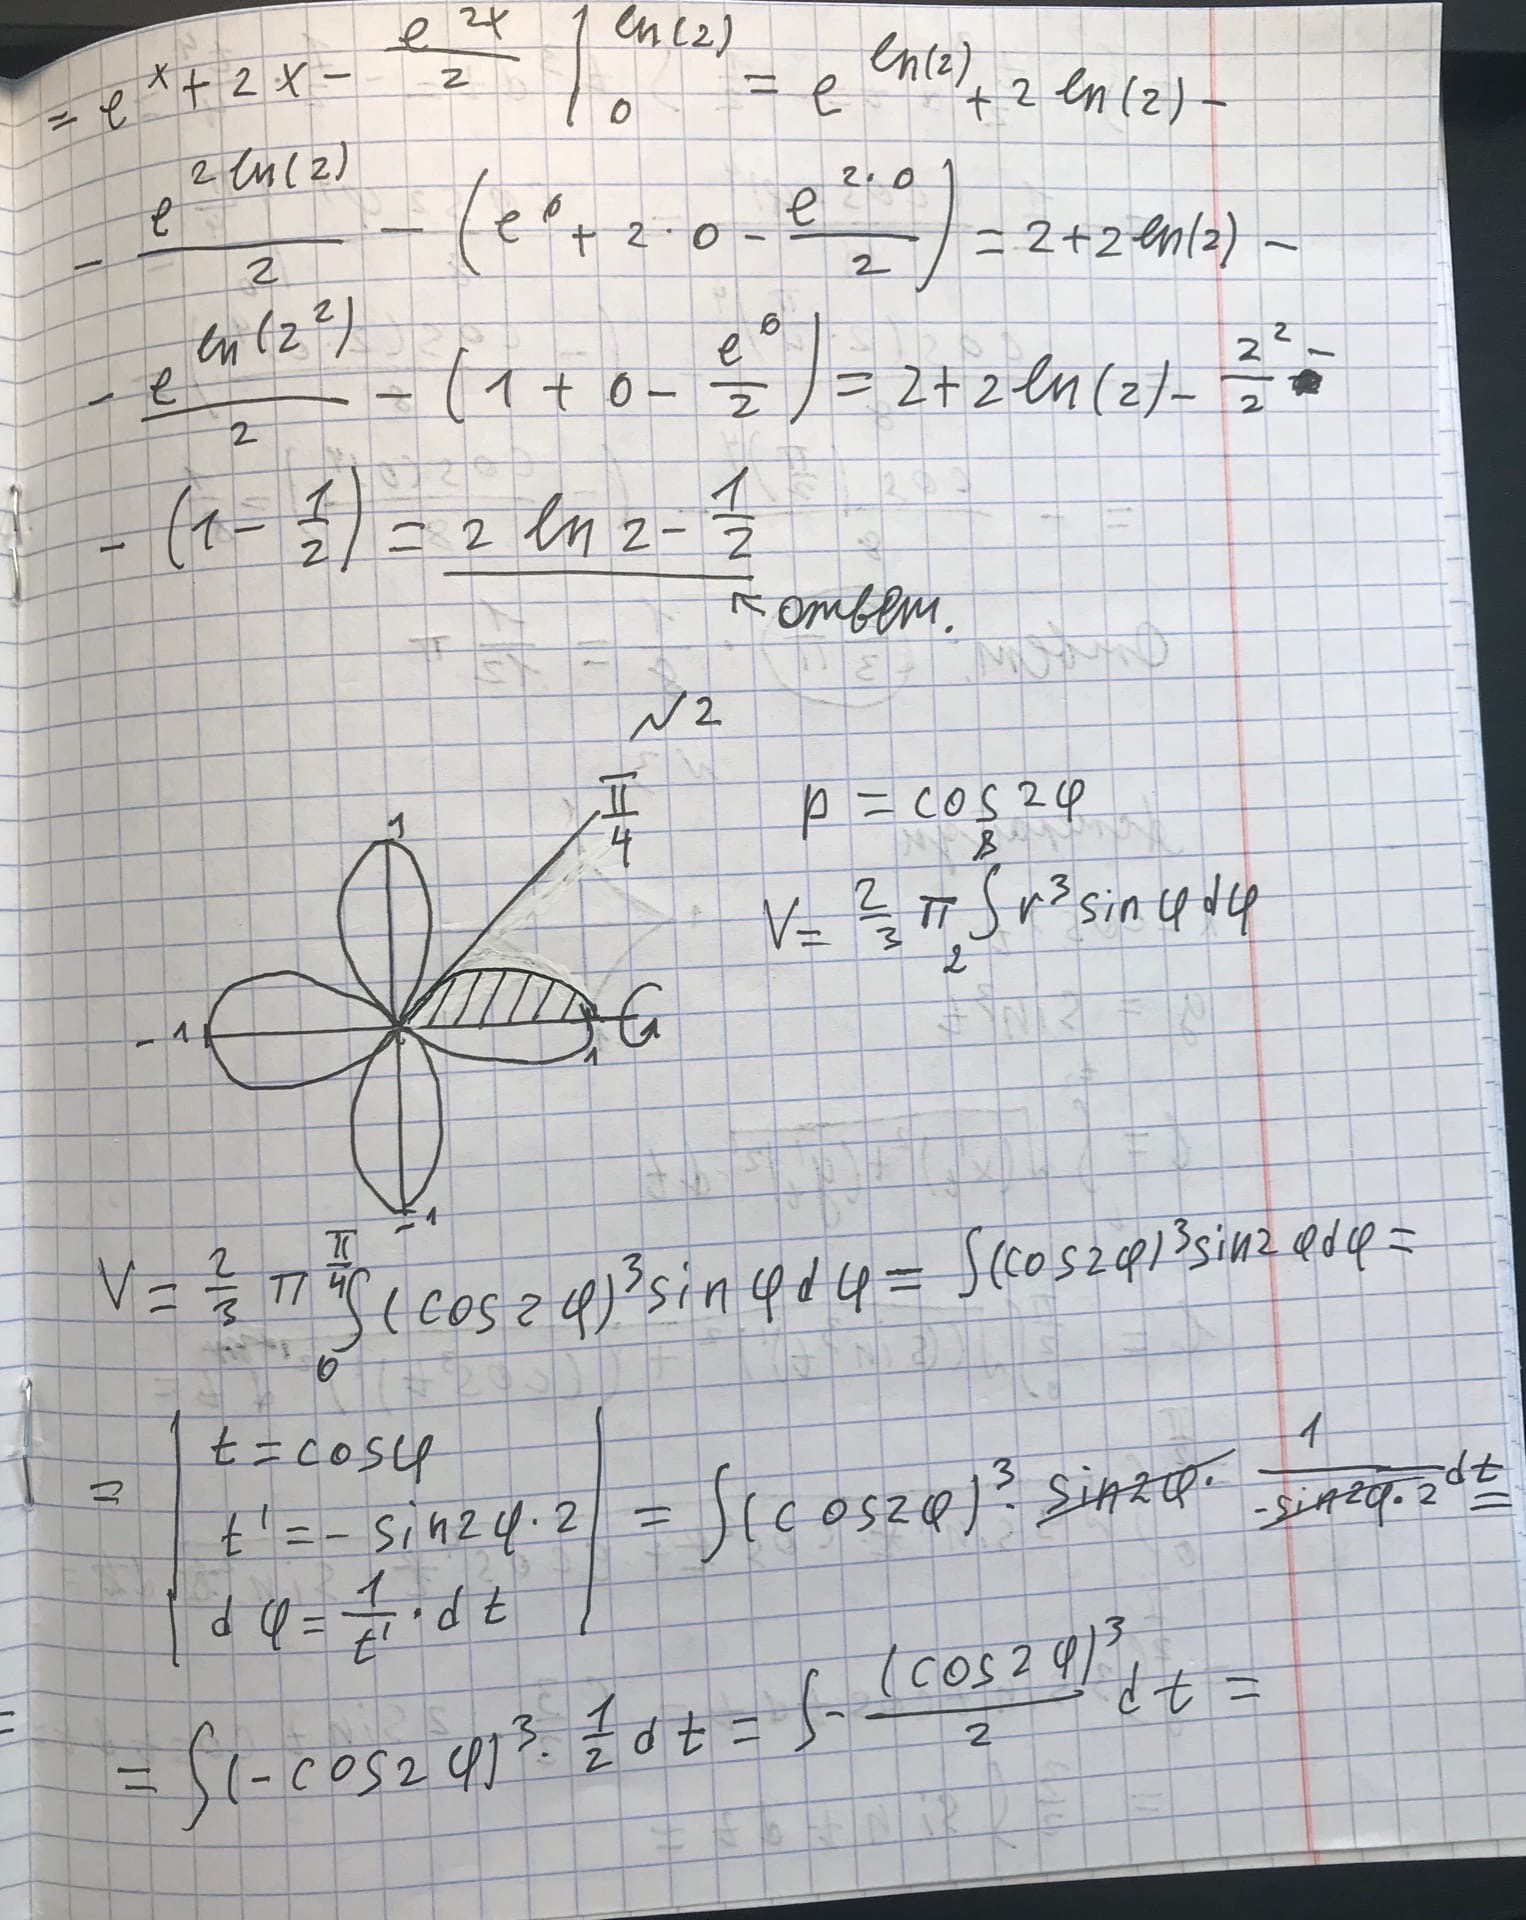 = e^x + 2x - e^{2x}/2 |_0^{ln(2)} = e^{ln(2)} + 2 ln(2) -
- e^{2 ln(2)}/2 - (e^0 + 2·0 - e^{2·0}/2) = 2 + 2 ln(2) -
- e^{ln(2^2)}/2 - (1 + 0 - e^0/2) = 2 + 2 ln(2) - 2^2/2 -
- (1 - 1/2) = 2 ln 2 - 1/2
↖ ответ.
№2
π/4
1
-1
1
-1
ρ = cos 2φ
V = 2/3 π ∫_2^β r^3 sin φ dφ
V = 2/3 π ∫_0^{π/4} (cos 2φ)^3 sin φ dφ = ∫(cos 2φ)^3 sin 2φ dφ =
= | t = cos φ
t' = - sin 2φ · 2
dφ = 1/t' · dt | = ∫(cos 2φ)^3 · sin 2φ · 1/(-sin 2φ · 2) dt =
= ∫(-cos 2φ)^3 · 1/2 dt = ∫ - (cos 2φ)^3/2 dt =